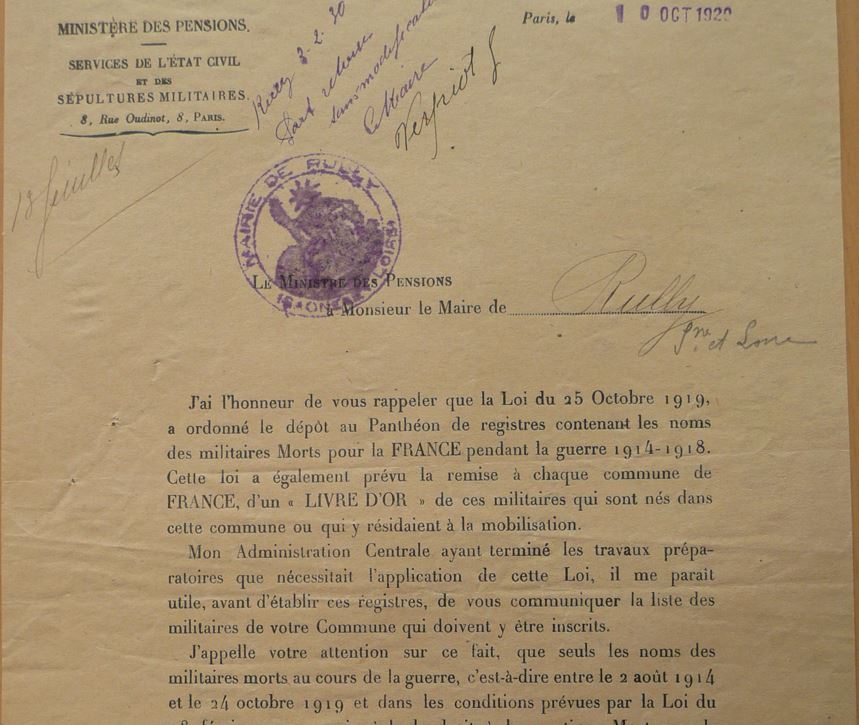 MINISTÈRE DES PENSIONS.
SERVICES DE L'ÉTAT CIVIL
ET DES
SÉPULTURES MILITAIRES.
8, Rue Oudinot, 8, PARIS.
Rully 3-2-30
retenu
sans modification
Le Maire
Paris, le 10 OCT 1929
18 feuilles
MAIRIE DE RULLY
(SAÔNE-&-LOIRE)
LE MINISTRE DES PENSIONS
à Monsieur le Maire de Rully
Sne et Loire
J'ai l'honneur de vous rappeler que la Loi du 25 Octobre 1919,
a ordonné le dépôt au Panthéon de registres contenant les noms
des militaires Morts pour la FRANCE pendant la guerre 1914-1918.
Cette loi a également prévu la remise à chaque commune de
FRANCE, d'un « LIVRE D'OR » de ces militaires qui sont nés dans
cette commune ou qui y résidaient à la mobilisation.
Mon Administration Centrale ayant terminé les travaux prépa-
ratoires que nécessitait l'application de cette Loi, il me paraît
utile, avant d'établir ces registres, de vous communiquer la liste des
militaires de votre Commune qui doivent y être inscrits.
J'appelle votre attention sur ce fait, que seuls les noms des
militaires morts au cours de la guerre, c'est-à-dire entre le 2 août 1914
et le 24 octobre 1919 et dans les conditions prévues par la Loi du